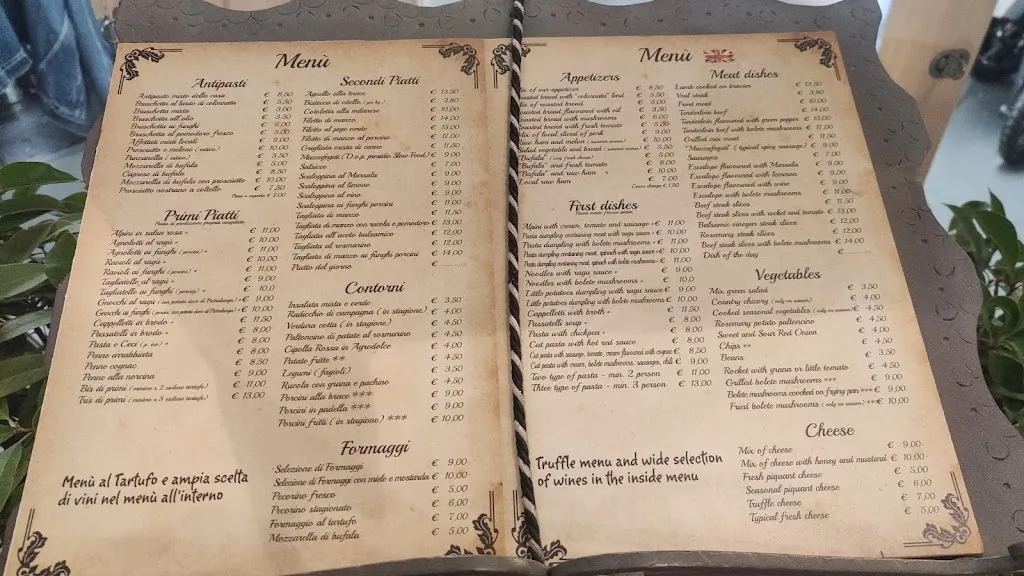 Menù
Antipasti
Antipasto misto della casa € 8,50
Bruschetta al lardo di colonnata € 5,50
Bruschetta mista € 5,00
Bruschetta all'olio € 3,50
Bruschetta ai funghi € 6,00
Bruschetta al pomodoro fresco € 5,00
Affettati misti locali € 9,00
Prosciutto e melone € 10,00
Panzanella € 5,50
Mozzarella di bufala € 5,00
Caprese di bufala € 8,50
Mozzarella di bufala con prosciutto € 10,00
Prosciutto nostrano a coltello € 7,50
Pane e coperto € 2,00
Primi Piatti
Alpini in salsa rosa € 11,00
Agnolotti al ragù € 10,00
Agnolotti ai funghi € 11,00
Ravioli al ragù € 10,00
Ravioli ai funghi € 11,50
Tagliatelle al ragù € 9,00
Tagliatelle ai funghi € 10,00
Gnocchi al ragù € 9,00
Gnocchi ai funghi € 10,00
Cappelletti in brodo € 11,50
Passatelli in brodo € 8,00
Pasta e Ceci € 8,00
Penne arrabbiata € 8,00
Penne cognac € 8,50
Penne alla norcina € 9,00
Bis di primi (minimo x 2 escluso tartufo) € 11,00
Tris di primi (minimo x 3 escluso tartufo) € 13,00
Menù al Tartufo e ampia scelta
di vini nel menù all'interno
Secondi Piatti
Agnello alla brace € 13,50
Bistecca di vitello € 3,80
Cotoletta alla milanese € 10,00
Filetto di manzo € 14,00
Filetto al pepe verde € 15,00
Filetto di manzo ai porcini € 17,00
Grigliata mista di carne € 11,50
Mazzafegati "D.o.p. presidio Slow Food" € 9,00
Salsicce € 7,00
Scaloppina al Marsala € 9,00
Scaloppina al limone € 9,00
Scaloppina al vino € 9,00
Scaloppina ai funghi porcini € 11,00
Tagliata di manzo € 11,50
Tagliata di manzo con rucola e pomodoro € 13,00
Tagliata all'aceto balsamico € 12,00
Tagliata al rosmarino € 12,00
Tagliata di manzo ai funghi porcini € 14,00
Piatto del giorno €
Contorni
Insalata mista e verde € 3,50
Radicchio di campagna (in stagione) € 4,00
Verdura cotta (in stagione) € 4,50
Patloncino di patate al rosmarino € 4,50
Cipolla Rossa in Agrodolce € 4,00
Patate fritte ** € 4,50
Legumi (fagioli) € 3,50
Rucola con grana e pachino € 4,50
Porcini alla brace *** € 9,00
Porcini in padella *** € 9,00
Porcini fritti (in stagione) *** € 10,00
Formaggi
Selezione di Formaggi € 9,00
Selezione di Formaggi con miele e mostarda € 10,00
Pecorino fresco € 5,00
Pecorino stagionato € 6,00
Formaggio al tartufo € 7,00
Mozzarella di bufala € 5,00
Menù
Appetizers
Mix of our appetizer € 8,50
Toasted bread with "colonnata" lard € 5,50
Mix of toasted bread € 5,00
Toasted bread flavoured with oil € 3,50
Toasted bread with mushrooms € 6,00
Toasted bread with fresh tomato € 5,00
Mix of local sliced of pork € 9,00
Raw ham and melon € 10,00
Salad vegetable and bread € 5,50
"Bufala" € 5,00
"Bufala" and fresh tomato € 8,00
"Bufala" and raw ham € 10,00
Local raw ham € 7,00
Cover charge € 1,50
First dishes
Alpini with cream, tomato and sausage € 11,00
Pasta dumpling containing meat with ragu sauce € 10,00
Pasta dumpling with bolete mushrooms € 11,00
Pasta dumpling containing meat, spinach with ragu sauce € 10,00
Pasta dumpling containing meat, spinach with bolete mushrooms € 11,00
Noodles with ragu sauce € 9,00
Noodles with bolete mushrooms € 10,0
Little potatoes dumpling with ragu sauce € 9,00
Little potatoes dumpling with bolete mushrooms € 10,00
Cappelletti with broth € 11,50
Passatelli soup € 8,00
Pasta with chickpea € 8,00
Cut pasta with hot red sauce € 8,00
Cut pasta with sausage, tomato, cream flavoured with cognac € 8,50
Cut pasta with cream, bolete mushrooms, sausages, chili € 9,00
Two type of pasta - min. 2 person € 11,00
Three type of pasta - min. 3 person € 13,00
Truffle menu and wide selection
of wines in the inside menu
Meat dishes
Lamb cooked on brazier € 13,50
Veal steak € 3,80
Fried meat € 10,00
Tenderloin beef € 14,00
Tenderloin flavoured with green pepper € 15,00
Tenderloin beef with bolete mushrooms € 17,00
Grilled mix meat € 11,50
"Mazzafegati" (typical spicy sausage) € 9,00
Sausages € 7,00
Escalope flavoured with Marsala € 9,00
Escalope flavoured with lemon € 9,00
Escalope flavoured with wine € 9,00
Escalope with bolete mushrooms € 11,00
Beef steak slices € 11,50
Beef steak slices with rocket and tomato € 13,00
Balsamic vinegar steak slices € 12,00
Rosemary steak slices € 12,00
Beef steak slices with bolete mushrooms € 14,00
Dish of the day €
Vegetables
Mix green salad € 3,50
Country chicory (only on season) € 4,00
Cooked seasonal vegetables (only on season) € 4,50
Rosemary potato patloncino € 4,50
Sweet and Sour Red Onion € 4,00
Chips ** € 4,50
Beans € 3,50
Rocket with grana or little tomato € 4,50
Grilled bolete mushrooms *** € 9,00
Bolete mushrooms cooked on frying pan *** € 9,00
Fried bolete mushrooms (only on season) *** € 10,00
Cheese
Mix of cheese € 9,00
Mix of cheese with honey and mustard € 10,00
Fresh piquant cheese € 5,00
Seasonal piquant cheese € 6,00
Truffle cheese € 7,00
Typical fresh cheese € 5,00